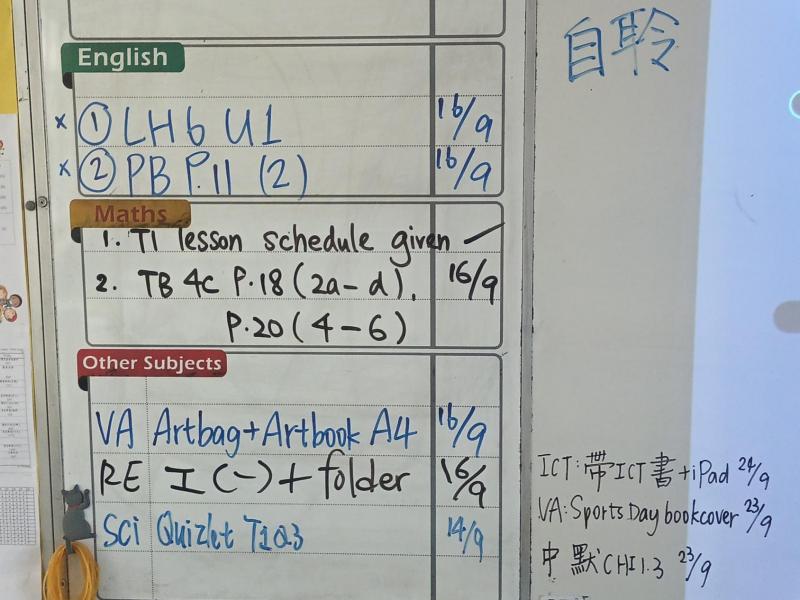 English
x ① LH6 U1 16/9
x ② PB P.11 (2) 16/9
Maths
1. T1 lesson schedule given
2. TB 4C P.18 (2a-d), 16/9
P.20 (4-6)
Other Subjects
VA Artbag+Artbook A4 16/9
RE 工(一)+folder 16/9
Sci Quizlet T1Q3 14/9
自聆
ICT:帶ICT書+iPad 24/9
VA:Sports Day bookcover 23/9
中默CHI1.3 23/9